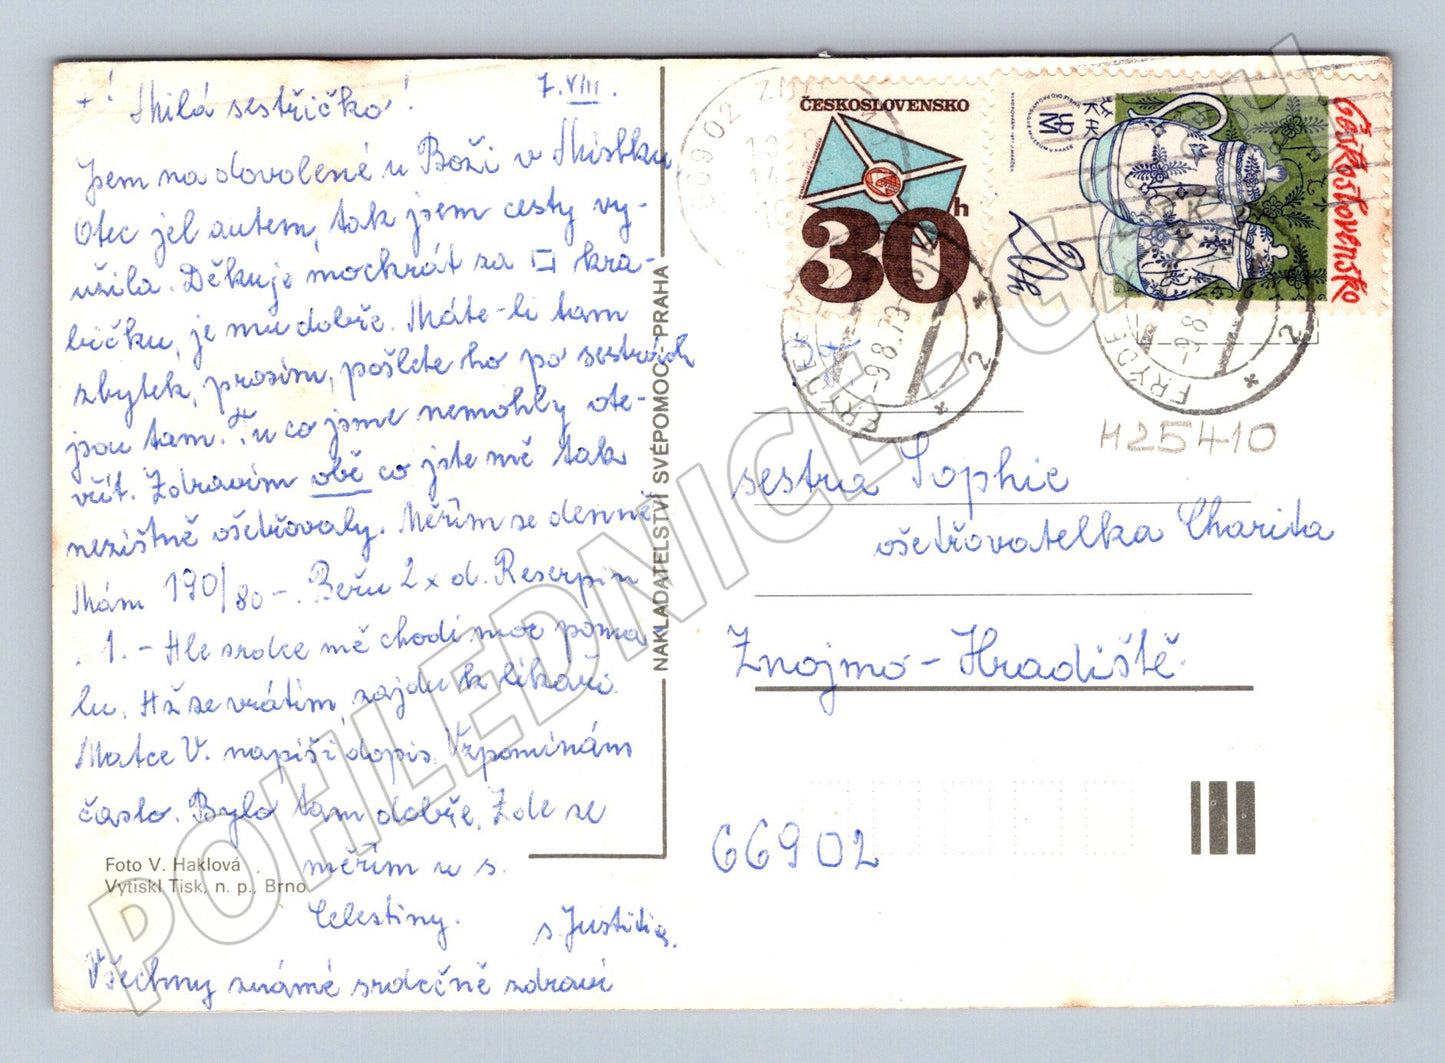 +! Milá sestřičko!
7.VIII.
Jsem na dovolené u Boží v Místku
Otec jel autem, tak jsem cesty vy-
užila. Děkuje mockrát za krá-
líčku, je mu dobře. Máte-li tam
zbytek, prosím, pošlete ho po sestrách
jsou tam. Tu co jsme nemohly ote-
vřít. Zdravím obě co jste mě tak
nezištně ošetřovaly. Měřím se denně
Mám 190/80-. Beru 2x d. Reserpin
1. - Ale srdce mě chodí moc poma
lu. Až se vrátím, zajdu k lékaři.
Matce V. napíši dopis. Vzpomínám
často. Bylo tam dobře. Zde se
měřím u s.
Celestiny.
s. Justitia.
Všechny známé srdečně zdraví
Foto V. Haklová
Vytiskl Tisk, n. p., Brno
NAKLADATELSTVÍ SVÉPOMOC PRAHA
ČESKOSLOVENSKO
30h
Československo
669 02 ZN
FRÝDEK
-9.8.79
2
FRÝDEK
-9.8.
2
H25410
sestra Sophie
ošetřovatelka Charita
Znojmo - Hradiště.
66902
POHLEDNICE-CACHU